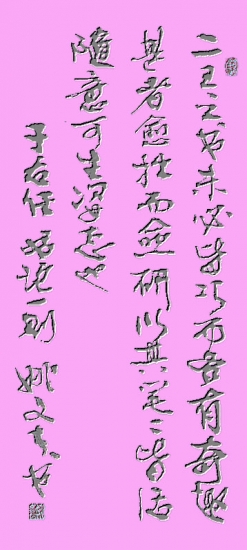 二王之书未必皆巧而各有奇趣
甚者愈拙而愈妍以其笔笔皆活
隨意可生姿态也
于右任书论一则 姚文书